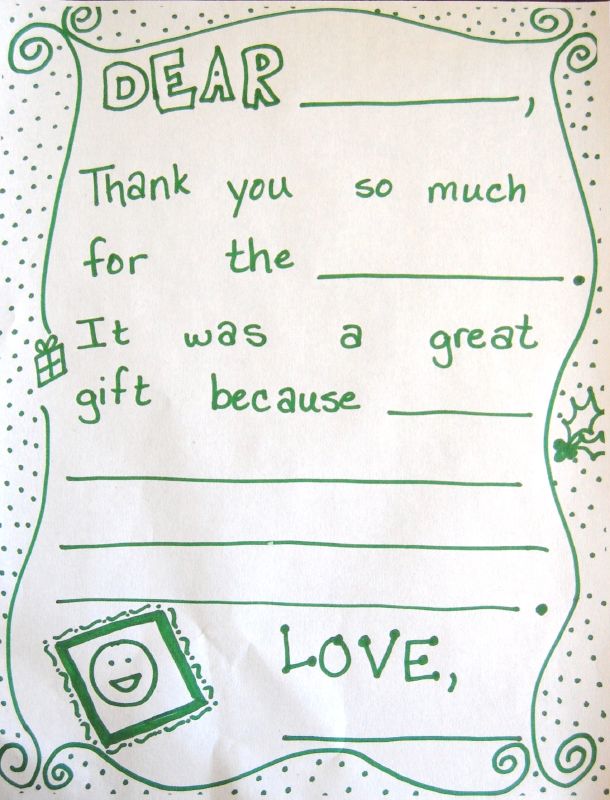 DEAR ____________,
Thank you so much
for the ____________.
It was a great
gift because ________
____________________
____________________
____________________.
LOVE,
____________